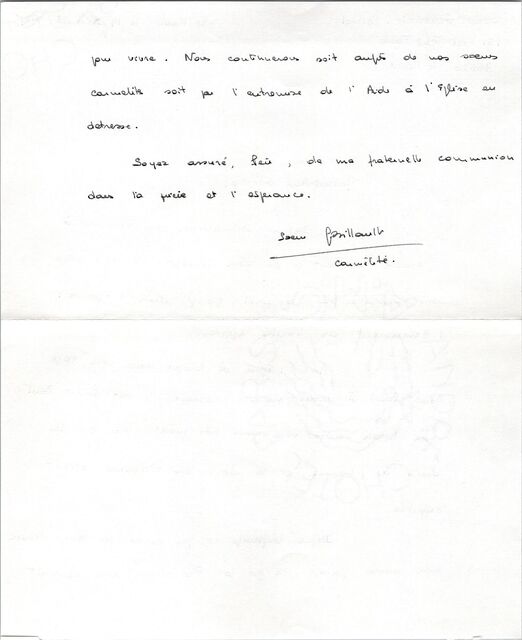 pour vivre. Nous continuerons soit auprès de nos soeurs
carmélites soit par l'entremise de l'Aide à l'Eglise en
détresse.
Soyez assuré, Père, de ma fraternelle communion
dans la prière et l'espérance.
Soeur
carmélite.